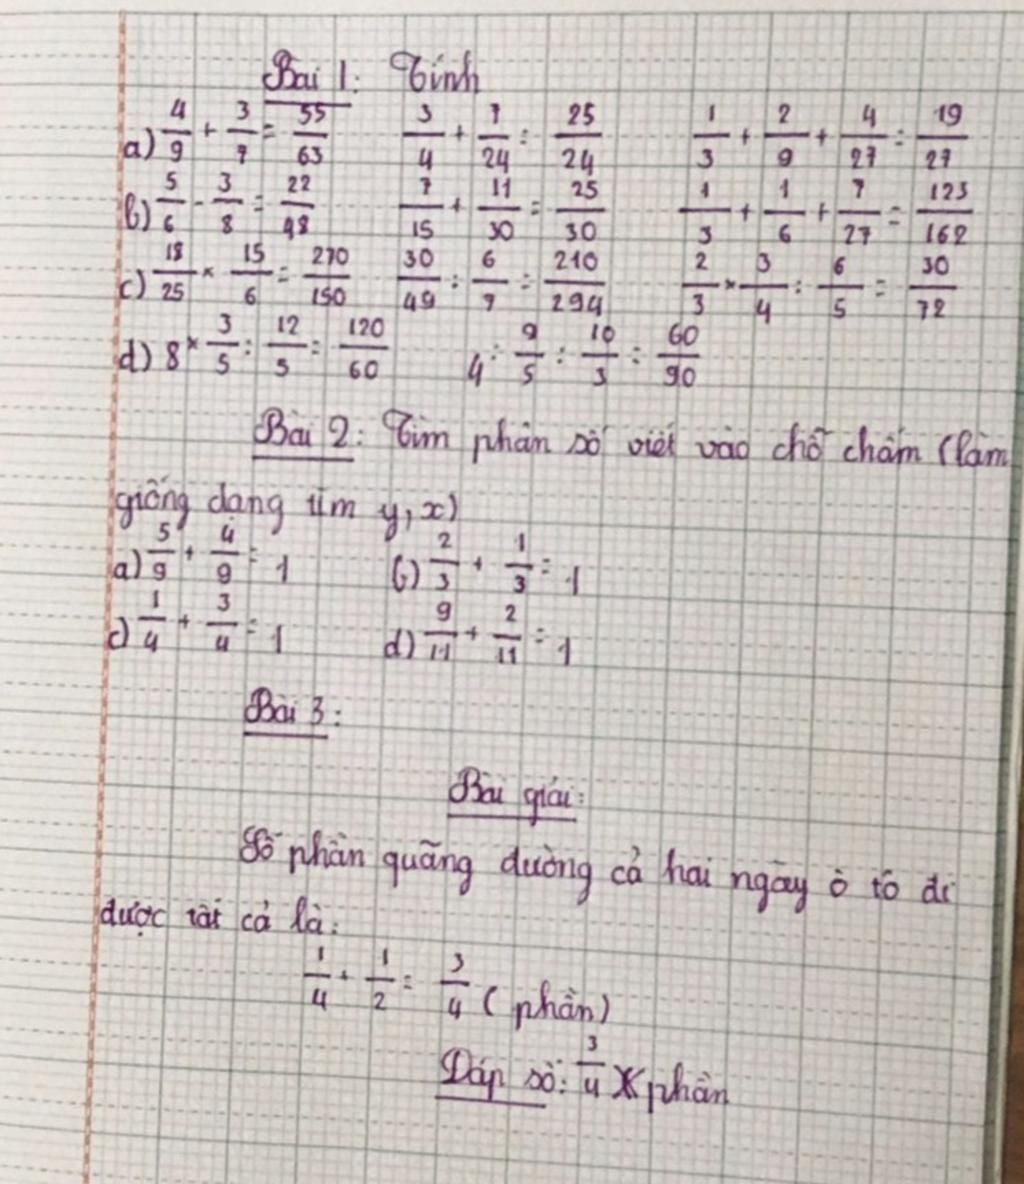 Bài 1: Tính
a) 4/9 + 3/7 = 55/63   3/4 + 7/24 = 25/24   1/3 + 2/9 + 4/27 = 19/27
b) 5/6 - 3/8 = 22/48   7/15 + 11/30 = 25/30   1/3 + 1/6 + 7/27 = 123/162
c) 18/25 × 15/6 = 270/150   30/49 : 6/7 = 210/294   2/3 × 3/4 : 6/5 = 30/72
d) 8 × 3/5 : 12/5 = 120/60   4 : 9/5 : 10/3 = 60/90
Bài 2: Tìm phân số viết vào chỗ chấm (làm
giống dạng tìm y, x)
a) 5/9 + 4/9 = 1   b) 2/3 + 1/3 = 1
c) 1/4 + 3/4 = 1   d) 9/11 + 2/11 = 1
Bài 3:
Bài giải:
Số phần quãng đường cả hai ngày ô tô đi
được tất cả là:
1/4 + 1/2 = 3/4 (phần)
Đáp số: 3/4 phần